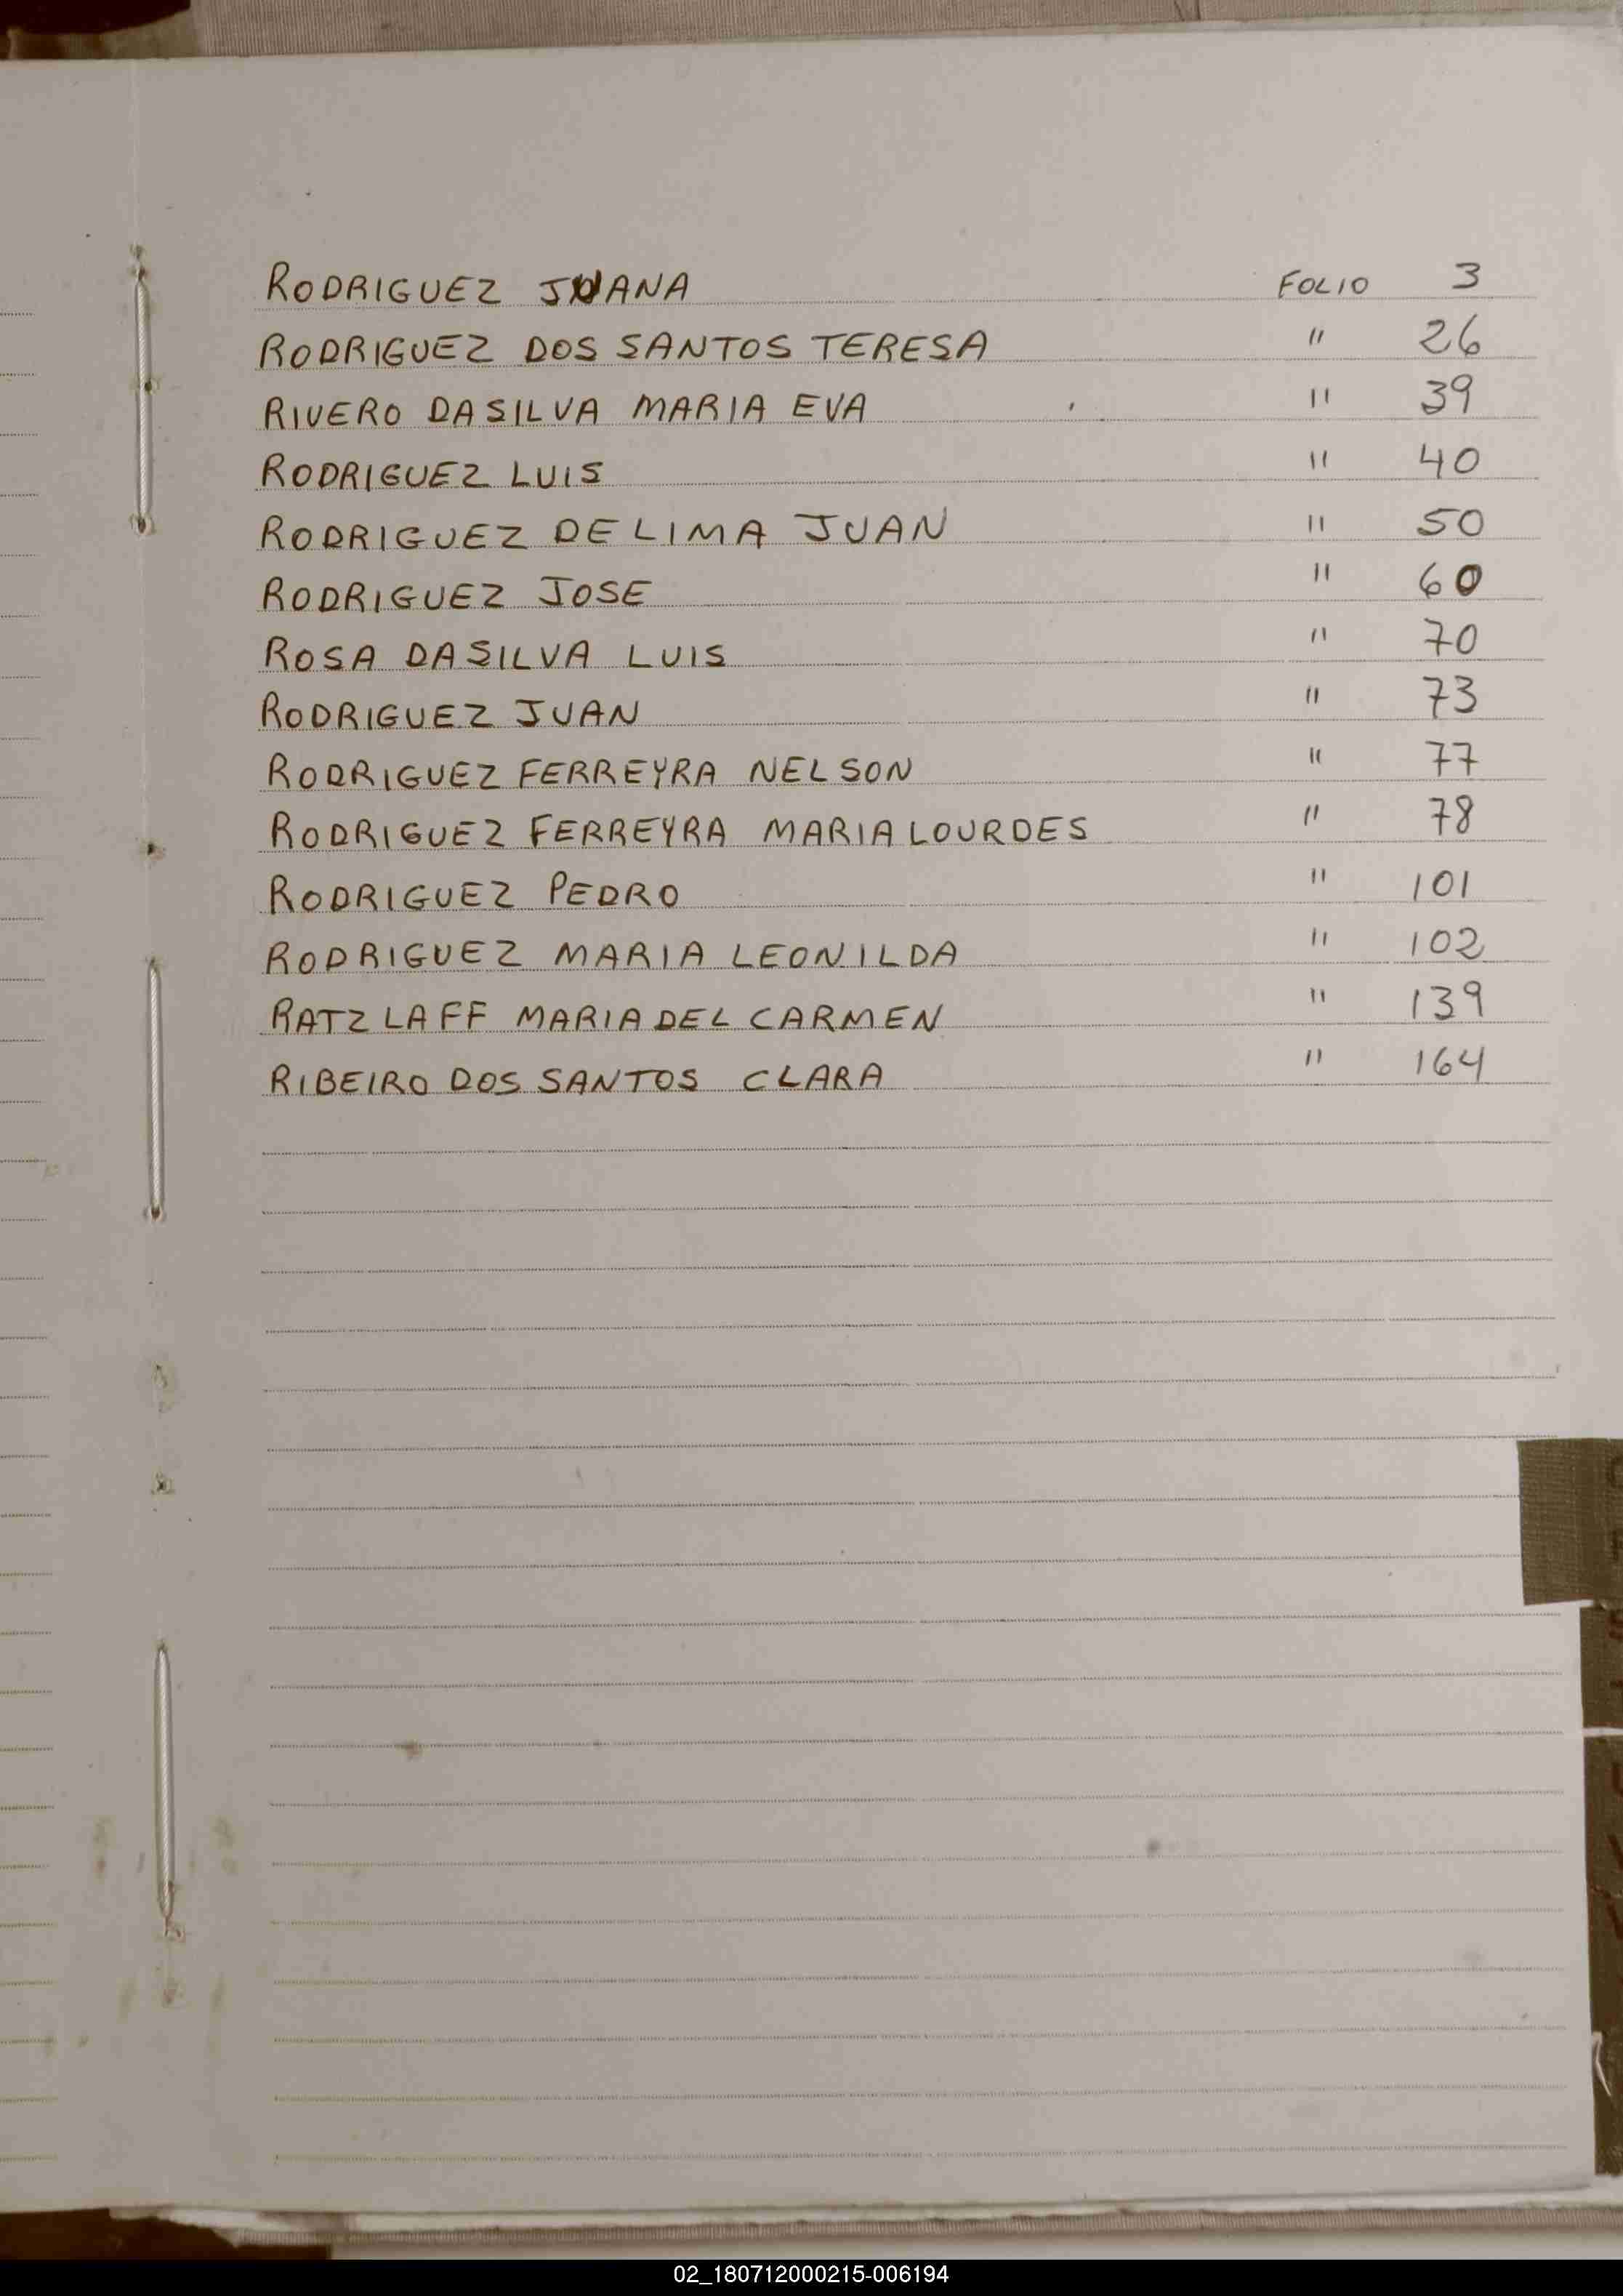 RODRIGUEZ JUANA FOLIO 3
RODRIGUEZ DOS SANTOS TERESA " 26
RIVERO DA SILVA MARIA EVA " 39
RODRIGUEZ LUIS " 40
RODRIGUEZ DE LIMA JUAN " 50
RODRIGUEZ JOSE " 60
ROSA DA SILVA LUIS " 70
RODRIGUEZ JUAN " 73
RODRIGUEZ FERREYRA NELSON " 77
RODRIGUEZ FERREYRA MARIA LOURDES " 78
RODRIGUEZ PEDRO " 101
RODRIGUEZ MARIA LEONILDA " 102
RATZLAFF MARIA DEL CARMEN " 139
RIBEIRO DOS SANTOS CLARA " 164
02_180712000215-006194